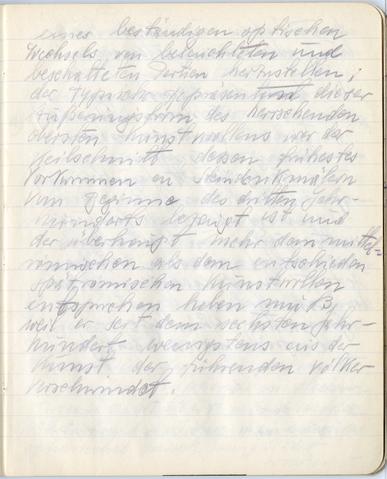 eines beständigen optischen
Wechsels von beleuchteten und
beschatteten Partien herzustellen;
der typische Repräsentant dieser
Äußerungsform des herrschenden
obersten Kunstwollens war der
Keilschnitt dessen frühestes
Vorkommen an Steindenkmälern
vom Beginne des dritten Jahr-
hunderts bezeugt ist und
der überhaupt mehr dem mittel-
römischen als dem entschieden
spätrömischen Kunstwollen
entsprochen haben muß,
weil er seit dem sechsten Jahr-
hundert wenigstens aus der
Kunst der führenden Völker
verschwindet.